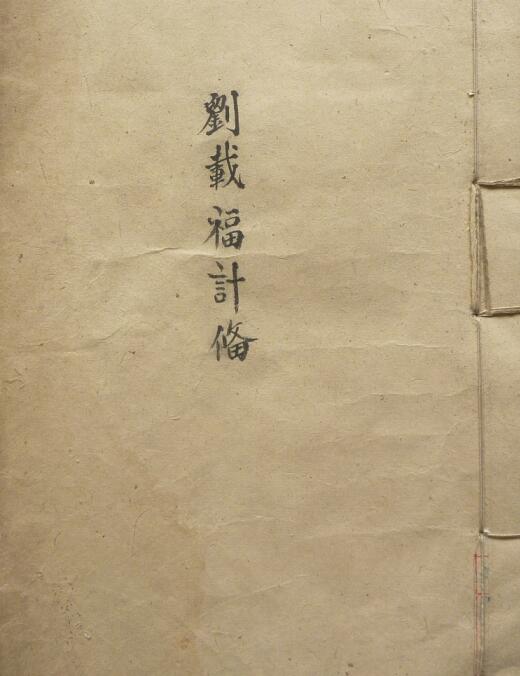 劉載福計俻